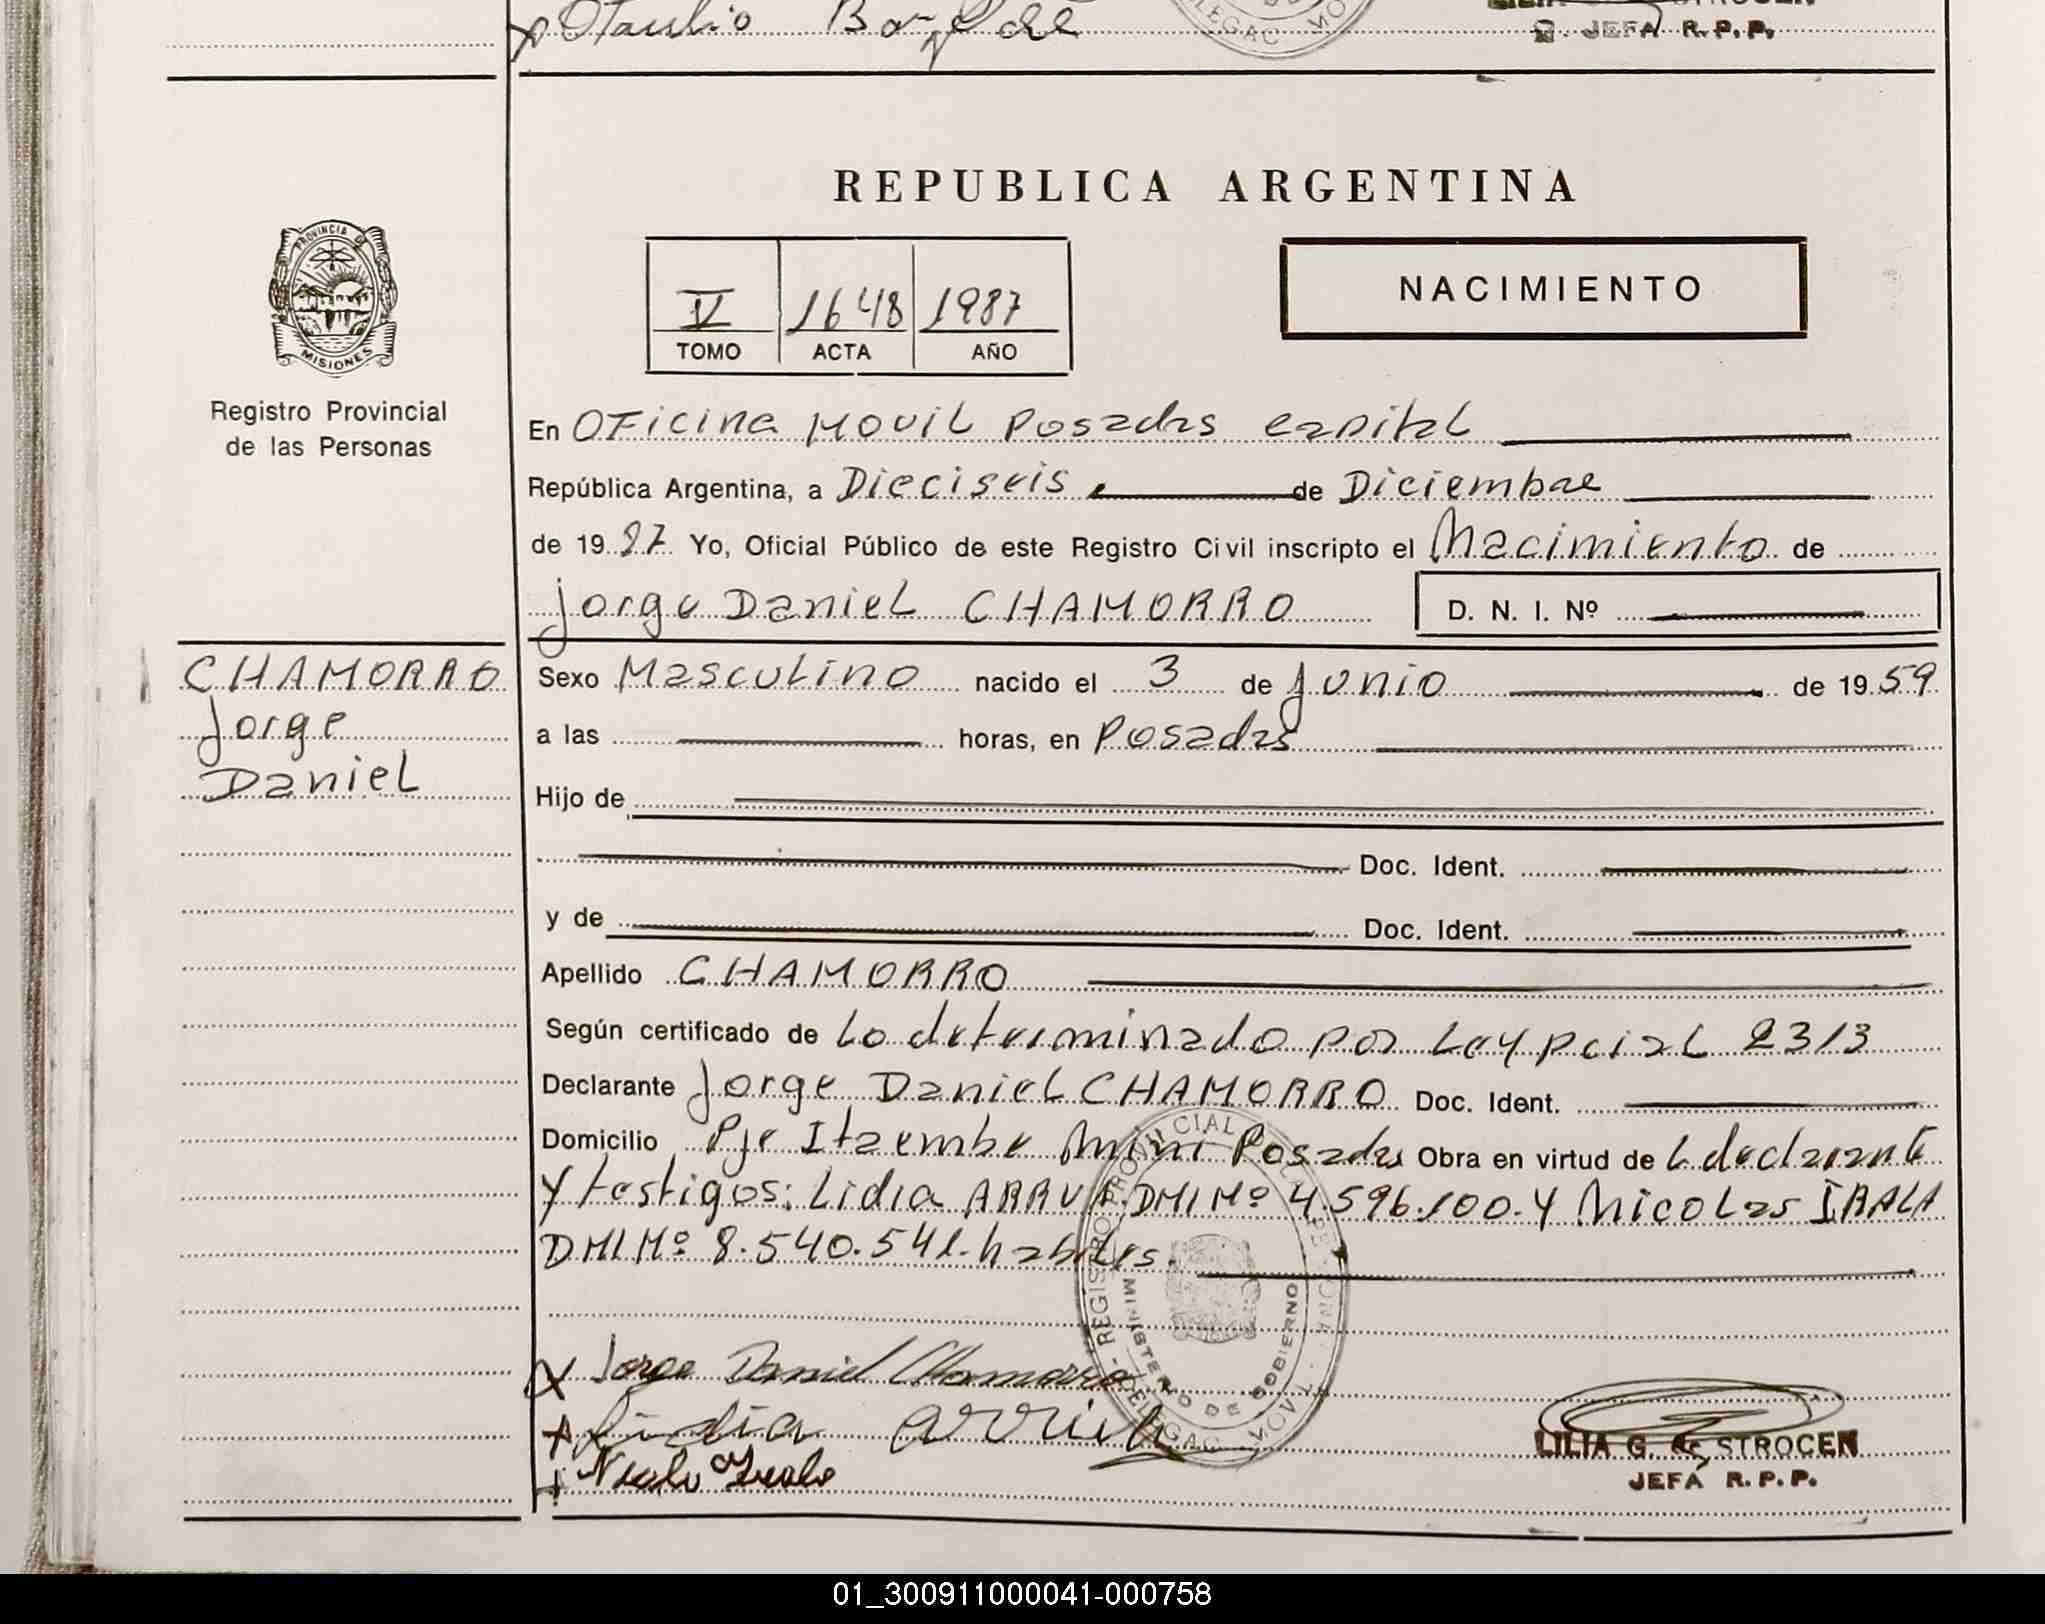 JEFA R.P.P.
REPUBLICA ARGENTINA
PROVINCIA DE
MISIONES
Registro Provincial
de las Personas
V 1648 1987
TOMO ACTA AÑO
NACIMIENTO
En OFicina Movil Posadas capital
República Argentina, a Dieciseis de Diciembre
de 19 87 Yo, Oficial Público de este Registro Civil inscripto el Nacimiento de
Jorge Daniel CHAMORRO D. N. I. Nº
CHAMORRO
Jorge
Daniel
Sexo Masculino nacido el 3 de Junio de 19 59
a las horas, en Posadas
Hijo de
Doc. Ident.
y de Doc. Ident.
Apellido CHAMORRO
Según certificado de Lo determinado por Ley pcial 2313
Declarante Jorge Daniel CHAMORRO Doc. Ident.
Domicilio Pje Itaembe Mini Posadas Obra en virtud de L declarante
Y testigos: Lidia ARRUA DNI Nº 4.596.100. Y Nicolas IRALA
DNI Nº 8.540.541. habiles.
REGISTRO PROVINCIAL DE LAS PERSONAS
MINISTERIO DE GOBIERNO
DELEGAC. MOVIL
x Jorge Daniel Chamorro
+ Lidia Arrua
+ Nicola Irala
LILIA G. de STROCEN
JEFA R. P. P.
01_300911000041-000758